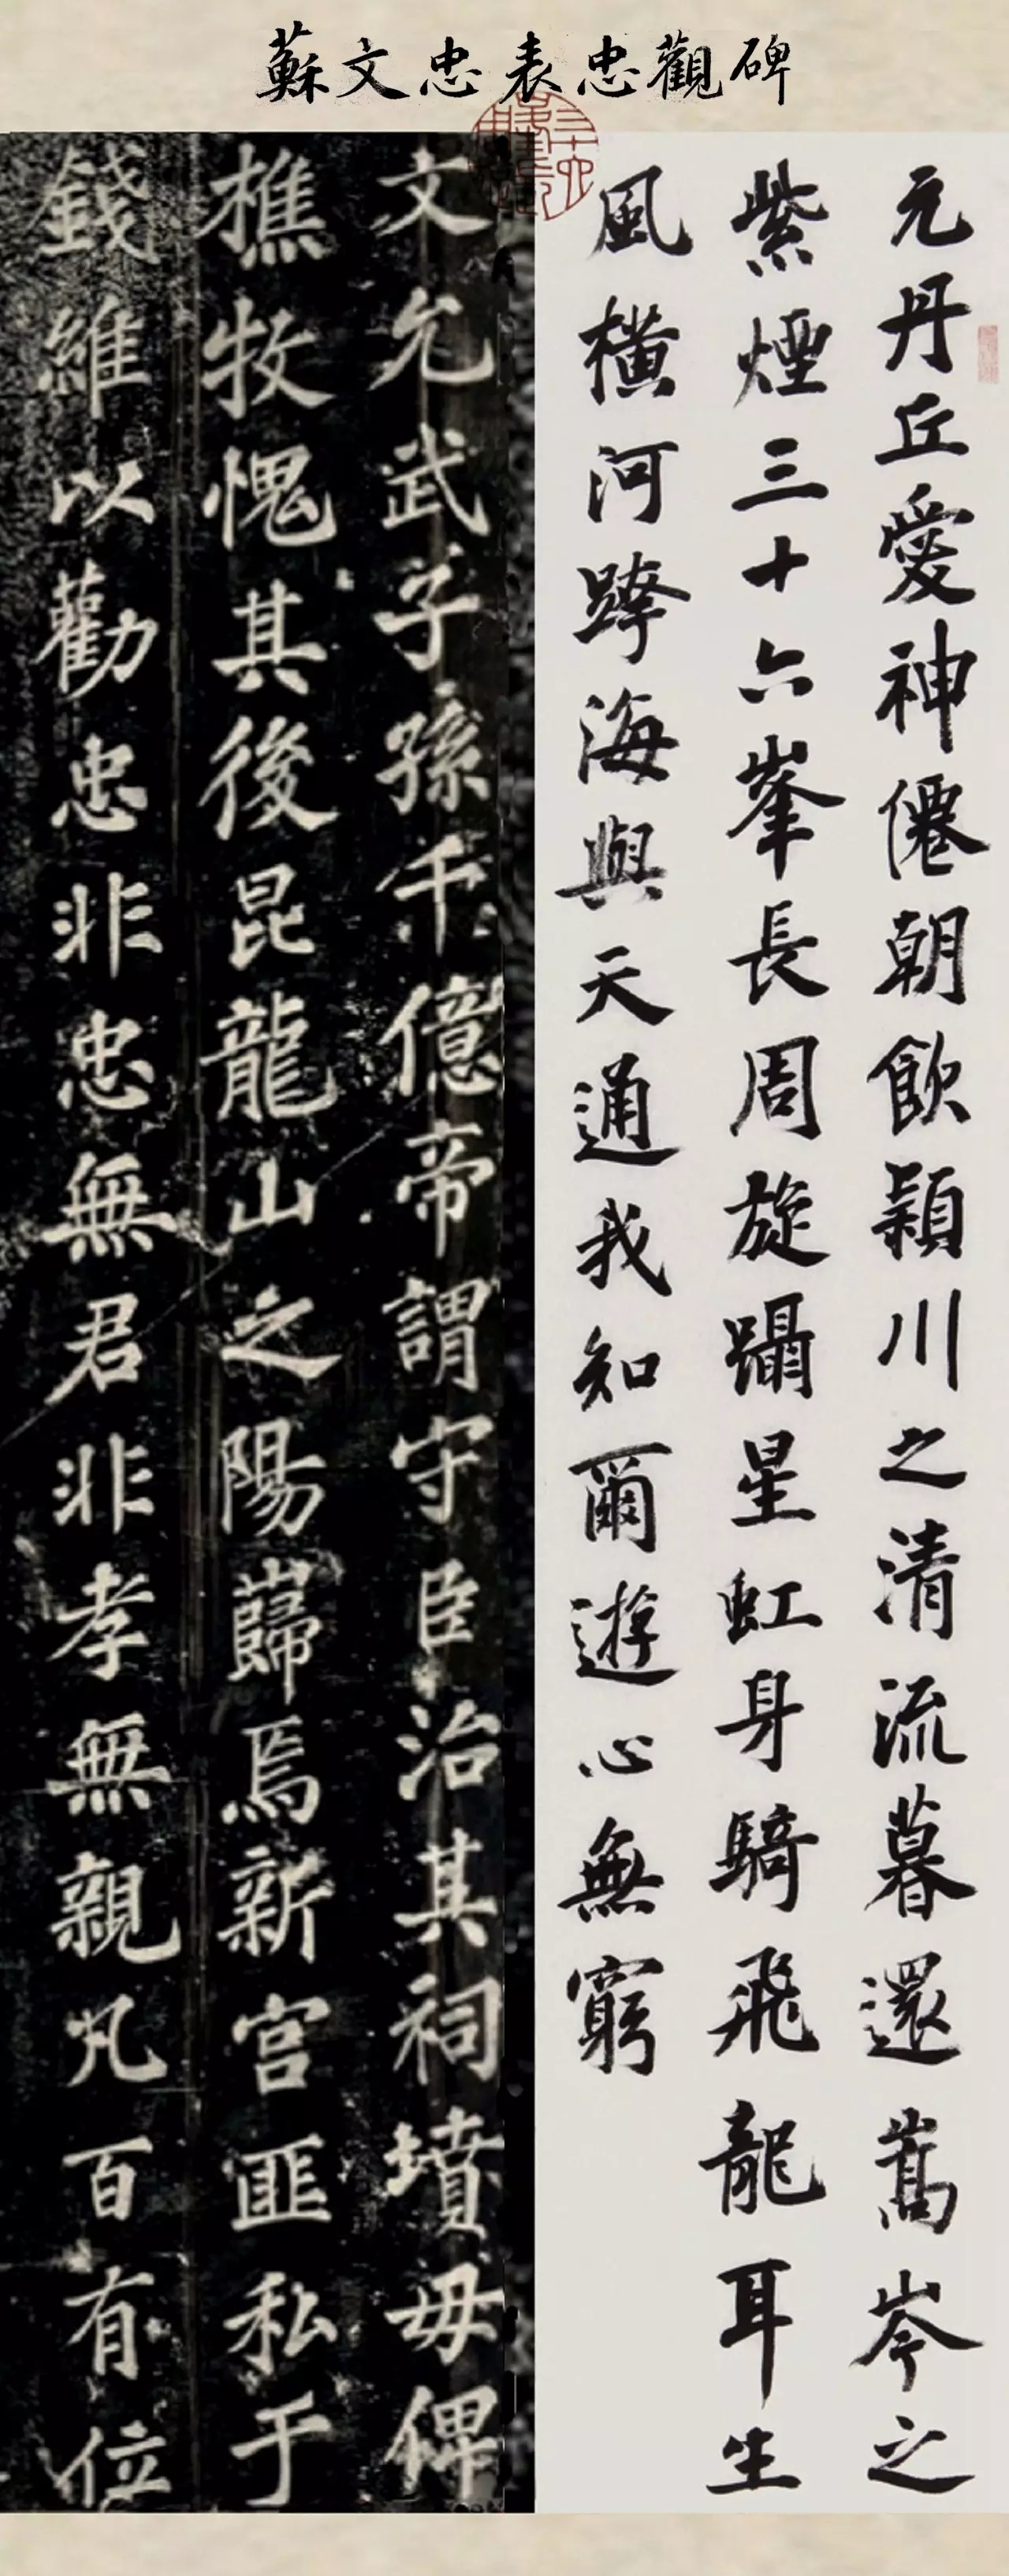 蘇文忠表忠觀碑
元丹丘愛神僊朝飲潁川之清流暮還嵩岑之
紫煙三十六峯長周旋長周旋躡星虹身騎飛龍耳生
風橫河跨海與天通我知爾遊心無窮
文允武子孫千億帝謂守臣治其祠墳毋俾
樵牧愧其後昆龍山之陽巋焉新宮匪私于
錢維以勸忠非忠無君非孝無親凡百有位